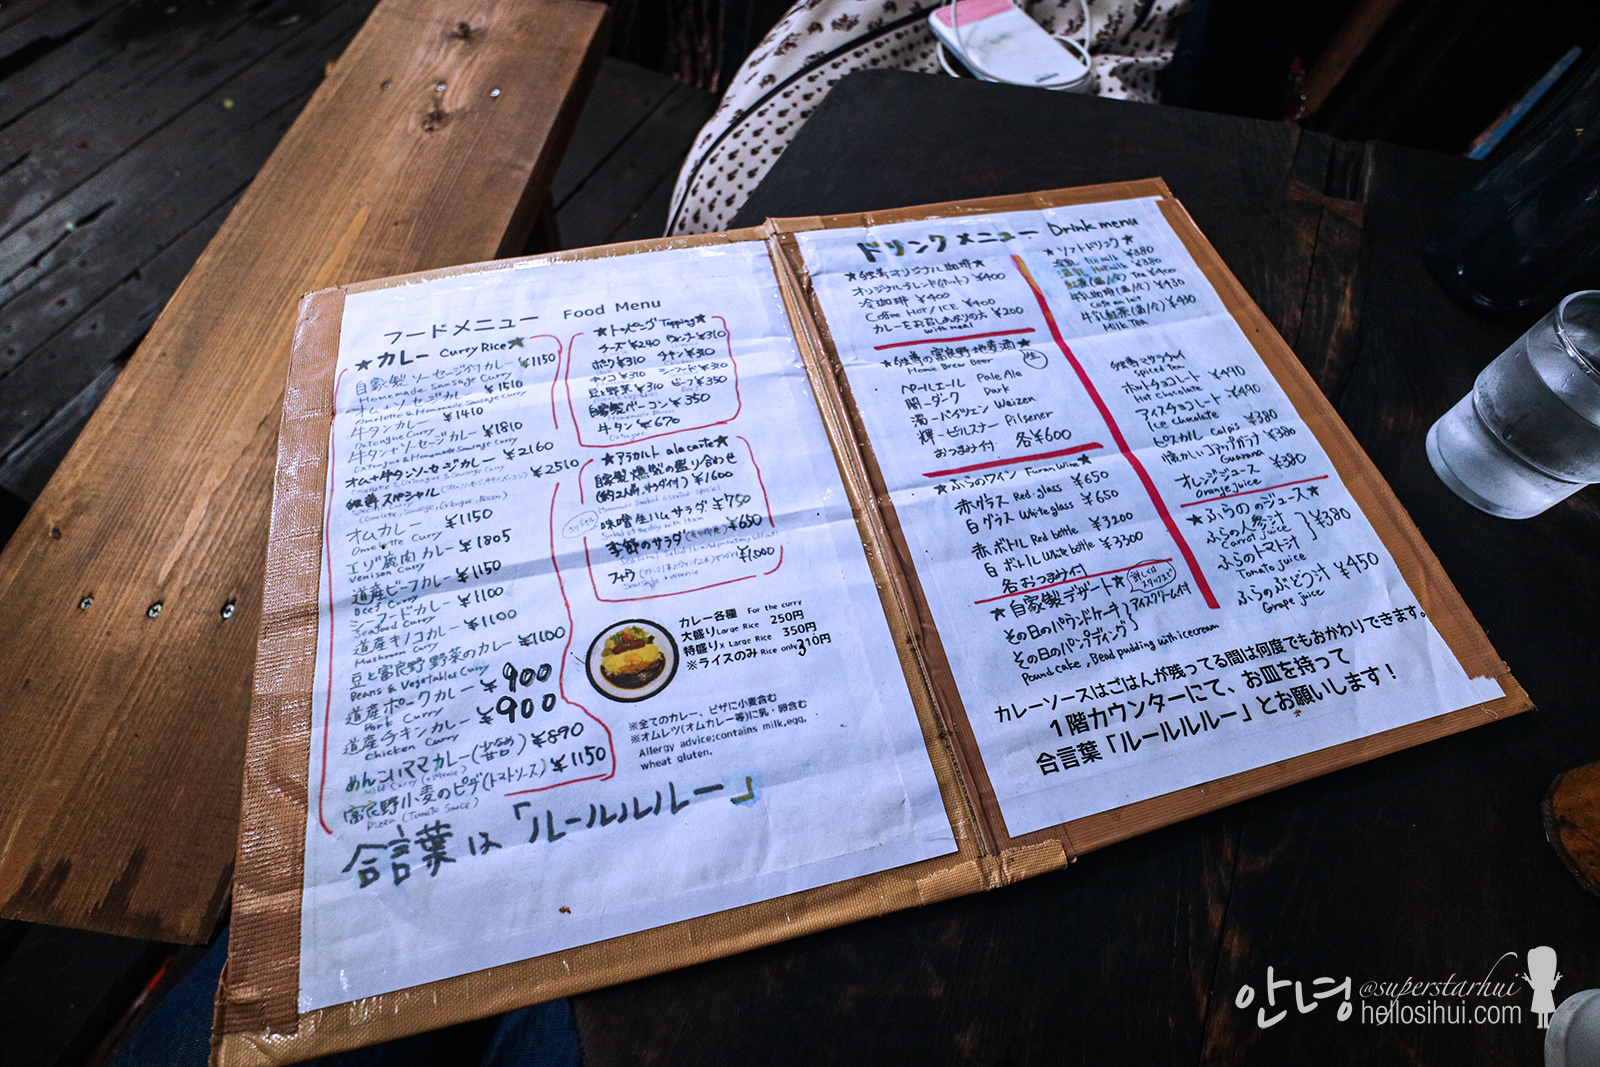 フードメニュー Food Menu
★カレー Curry Rice★
自家製ソーセージ付カレー ¥1150
Homemade Sausage Curry
オム+ソーセージカレー ¥1510
Omelette & Homemade Sausage Curry
牛タンカレー ¥1410
OxTongue Curry
牛タン+ソーセージカレー ¥1810
OxTongue & Homemade Sausage Curry
オム+牛タン+ソーセージカレー ¥2160
Omelette & OxTongue & Sausage Curry
唯我独尊スペシャル ¥2510
(Omelette, Sausage, OxTongue, Bacon)
オムカレー ¥1150
Omelette Curry
エゾ鹿肉カレー ¥1805
Venison Curry
道産ビーフカレー ¥1150
Beef Curry
シーフードカレー ¥1100
Seafood Curry
道産キノコカレー ¥1100
Mushroom Curry
豆と富良野野菜のカレー ¥1100
Beans & Vegetables Curry
道産ポークカレー ¥900
Pork Curry
道産チキンカレー ¥900
Chicken Curry
めんこいママカレー(甘口) ¥890
Mild Curry
富良野小麦のピザ(トマトソース) ¥1150
Pizza (Tomato Sauce)
合言葉は「ルールルルー」
★トッピング Topping★
チーズ ¥240 ウィンナー ¥310
ポーク ¥310 チキン ¥310
キノコ ¥310 シーフード ¥310
豆と野菜 ¥310 ビーフ ¥350
自家製ベーコン ¥350
Homemade Bacon
牛タン ¥670
OxTongue
★アラカルト a la carte★
自家製燻製の盛り合わせ
(約2人前、サラダ付) ¥1600
味噌生ハムサラダ ¥750
季節のサラダ ¥650
¥1,000
Sausage
カレー各種 For the curry
大盛り Large Rice 250円
特盛り X Large Rice 350円
※ライスのみ Rice only 310円
※全てのカレー、ピザに小麦含む
※オムレツ(オムカレー等)に乳・卵含む
Allergy advice;contains milk,egg,
wheat gluten.
ドリンクメニュー Drink menu
オリジナルブレンド(ホット) ¥400
冷珈琲 ¥400
Coffee Hot/ICE ¥400
カレーをお召しあがりの方 ¥200
with meal
Home Brew Beer
ペールエール Pale Ale
闇-ダーク Dark
濁-バイツェン Weizen
輝-ピルスナー Pilsener
おつまみ付 各¥600
★ふらのワイン Furan Wine★
赤グラス Red.glass ¥650
白グラス White glass ¥650
赤ボトル Red bottle ¥3200
白ボトル White bottle ¥3300
各おつまみ付
★自家製デザート★
その日のパウンドケーキ
その日のパンプディング
アイスクリーム付
Pound cake, Bead pudding with icecream
★ソフトドリンク★
冷乳 Ice milk ¥380
温乳 Hot milk ¥380
紅茶(温/冷) Tea ¥400
牛乳珈琲(温/冷) ¥430
Cafe au lait
牛乳紅茶(温/冷) ¥430
Milk Tea
Spiced Tea
ホットチョコレート ¥490
Hot chocolate
アイスチョコレート ¥490
Ice Chocolate
ピスカル Calpis ¥380
懐かしいコアップガラナ ¥380
Guarana
オレンジジュース ¥380
Orange juice
★ふらののジュース★
ふらの人参汁
Carrot juice
ふらのトマト汁 ¥380
Tomato juice
ふらのぶどう汁 ¥450
Grape juice
カレーソースはごはんが残ってる間は何度でもおかわりできます。
1階カウンターにて、お皿を持って
合言葉「ルールルルー」とお願いします！
안녕 @superstarhui
hellosihui.com